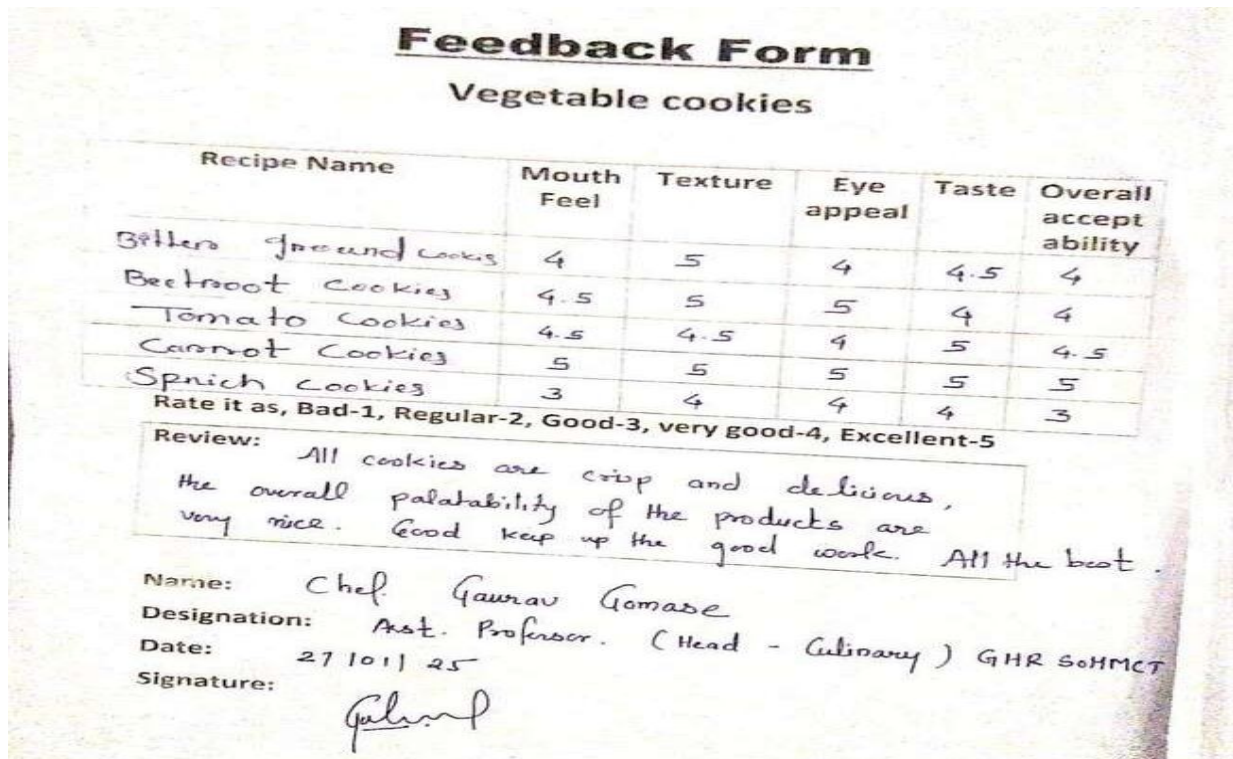 Feedback Form
Vegetable cookies
Recipe Name Mouth Feel Texture Eye appeal Taste Overall accept ability
Bitter ground cookis 4 5 4 4.5 4
Beetroot Cookies 4.5 5 5 4 4
Tomato Cookies 4.5 4.5 4 5 4.5
Carrot Cookies 5 5 5 5 5
Spnich Cookies 3 4 4 4 3
Rate it as, Bad-1, Regular-2, Good-3, very good-4, Excellent-5
Review: All cookies are crisp and delicious,
the overall palatability of the products are
very nice. Good keep up the good work. All the best.
Name: Chef. Gaurav Gomase
Designation: Asst. Professor. (Head - Culinary) GHR SOHMCT
Date: 27/01/25
Signature: